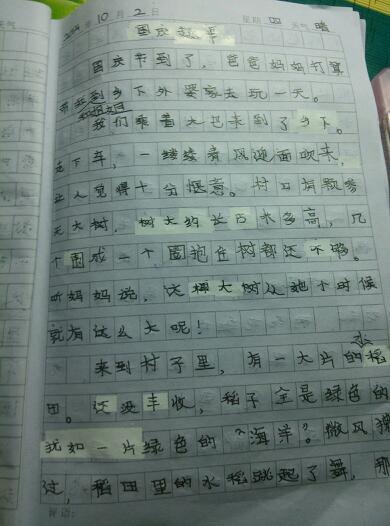 2014年10月2日 星期 四 天气 晴
国庆趣事
国庆节到了，爸爸妈妈打算
带我到乡下外婆家去玩一天。
和姐姐
我们乘着大巴来到了乡下。
走下车，一缕缕清风迎面吹来，
让人觉得十分惬意。村口有颗参
天大树，树大约长百米多高，几
个围成一个圈抱住树都还不够。
听妈妈说，这棵大树从她小时候
就有这么大呢！
来到村子里，有一大片的稻
田。还没丰收，稻子全是绿色的
犹如一片绿色的“海洋”。微风
过，稻田里的水稻跳起了舞，那
评语：